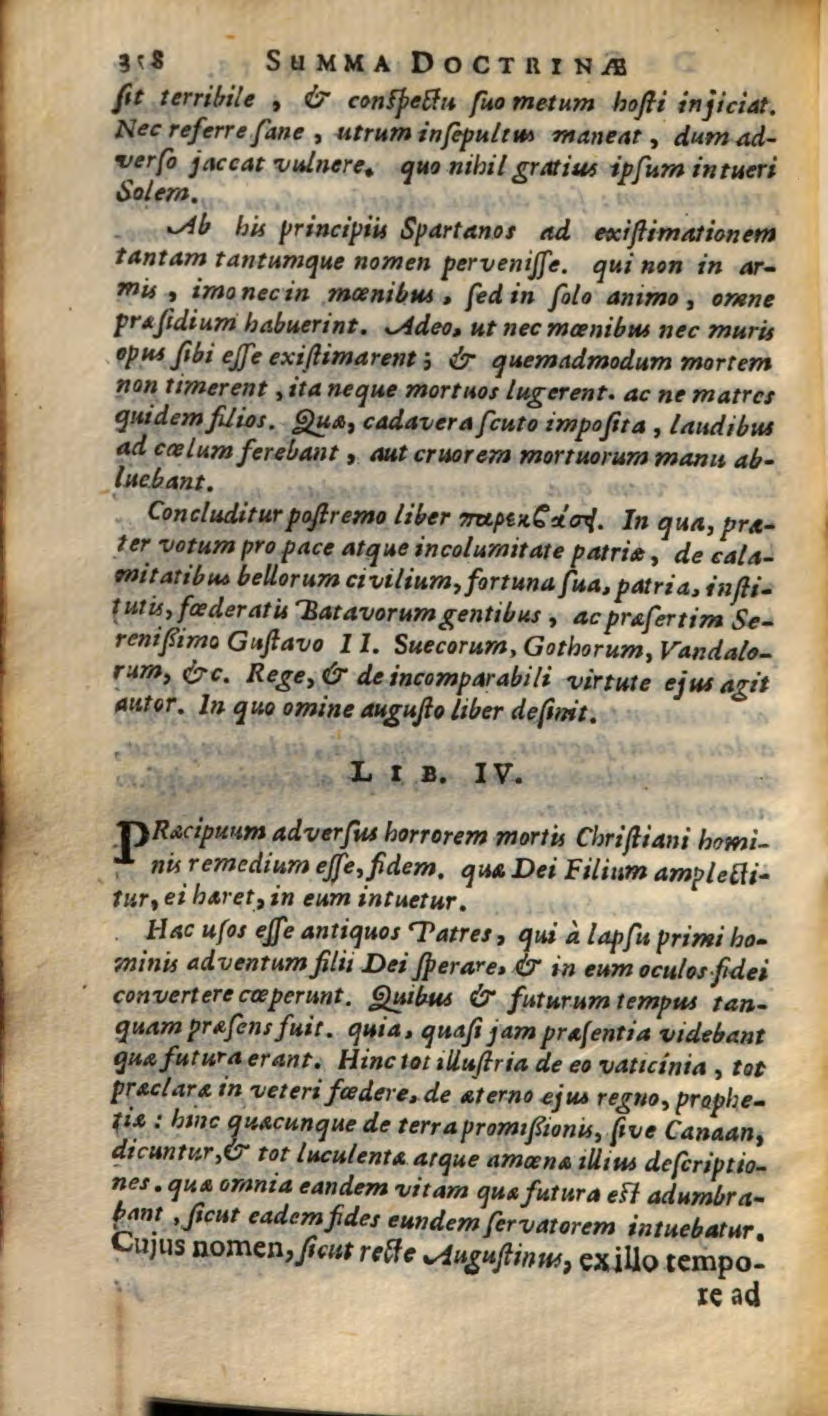 358 SUMMA DOCTRINÆ
ſit terribile , & conſpectu ſuo metum hoſti injiciat.
Nec referre ſane , utrum inſepultus maneat , dum ad-
verſo jaceat vulnere. quo nihil gratius ipſum intueri
Solem.
Ab his principiis Spartanos ad exiſtimationem
tantam tantumque nomen perveniſſe. qui non in ar-
mis , imo nec in mœnibus , ſed in ſolo animo , omne
præſidium habuerint. Adeo, ut nec mœnibus nec muris
opus ſibi eſſe exiſtimarent ; & quemadmodum mortem
non timerent , ita neque mortuos lugerent. ac ne matres
quidem filios. Quæ, cadavera ſcuto impoſita , laudibus
ad cœlum ferebant , aut cruorem mortuorum manu ab-
luebant.
Concluditur poſtremo liber παρεκβάσ. In qua, præ-
ter votum pro pace atque incolumitate patriæ, de cala-
mitatibus bellorum civilium, fortuna ſua, patria, inſti-
tutis, fœderatis Batavorum gentibus , ac præſertim Se-
reniſſimo Guſtavo II. Suecorum, Gothorum, Vandalo-
rum, &c. Rege, & de incomparabili virtute ejus agit
autor. In quo omine auguſto liber deſinit.
LIB. IV.
PRæcipuum adverſus horrorem mortis Chriſtiani homi-
nis remedium eſſe, fidem. qua Dei Filium amplecti-
tur, ei hæret, in eum intuetur.
Hac uſos eſſe antiquos Patres, qui à lapſu primi ho-
minis adventum filii Dei ſperare, & in eum oculos fidei
convertere cœperunt. Quibus & futurum tempus tan-
quam præſens fuit. quia, quaſi jam præſentia videbant
quæ futura erant. Hinc tot illuſtria de eo vaticinia , tot
præclaræ in veteri fœdere, de æterno ejus regno, prophe-
tiæ : hinc quæcunque de terra promiſſionis, ſive Canaan,
dicuntur, & tot luculentæ atque amœnæ illius deſcriptio-
nes. quæ omnia eandem vitam quæ futura eſt adumbra-
bant , ſicut eadem fides eundem ſervatorem intuebatur.
Cujus nomen, ſicut recte Auguſtinus, ex illo tempo-
re ad